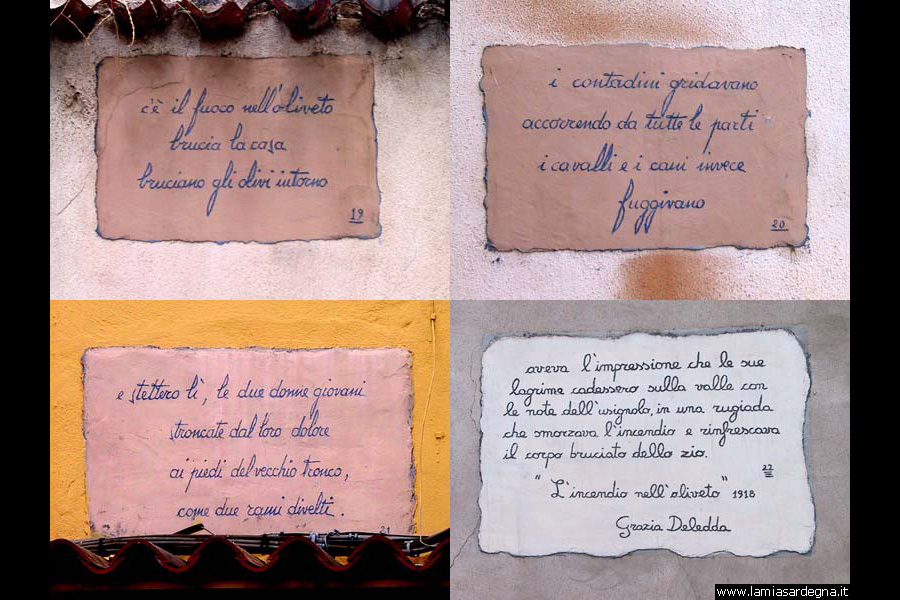 c'è il fuoco nell'oliveto
brucia la casa
bruciano gli olivi intorno
19
i contadini gridavano
accorrendo da tutte le parti
i cavalli e i cani invece
fuggivano
20
e stettero lì, le due donne giovani
stroncate dal loro dolore
ai piedi del vecchio tronco,
come due rami divelti.
21
aveva l'impressione che le sue
lagrime cadessero sulla valle con
le note dell'usignolo, in una rugiada
che smorzava l'incendio e rinfrescava
il corpo bruciato dello zio.
22
"L'incendio nell'oliveto" 1918
Grazia Deledda
www.lamiasardegna.it